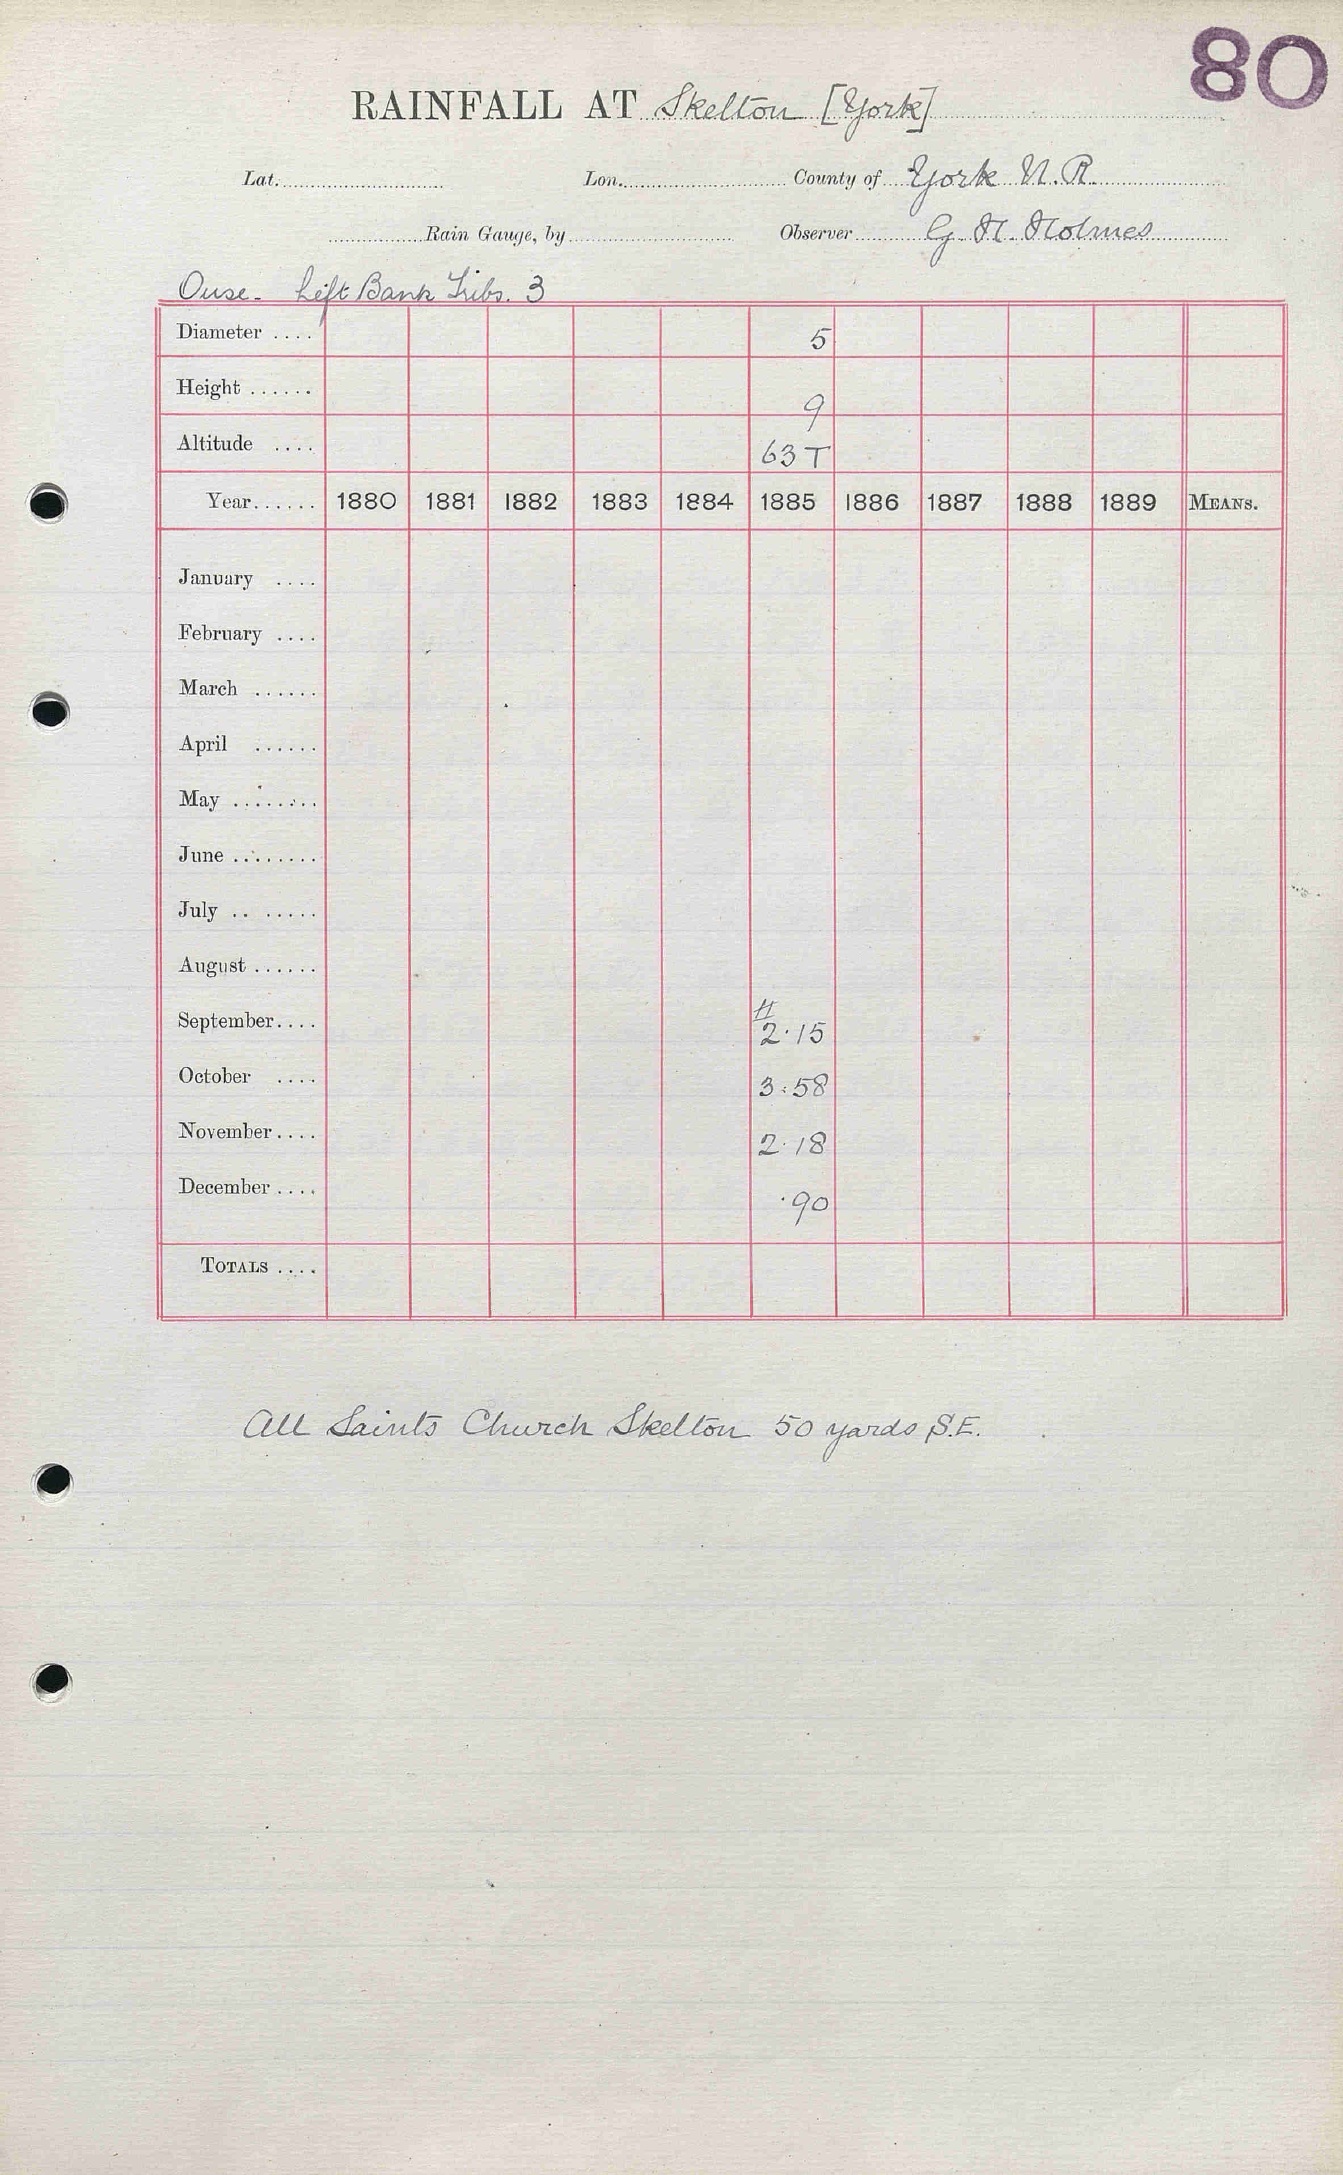 80
RAINFALL AT Skelton [York]
Lat. Lon. County of York N.R.
Rain Gauge, by Observer G. H. Holmes
Ouse - Left Bank Tribs. 3
Diameter .... 5
Height ...... 9
Altitude .... 63 T
Year...... 1880 1881 1882 1883 1884 1885 1886 1887 1888 1889 MEANS.
January ....
February ....
March ......
April ......
May ........
June ........
July .. ......
August ......
#
September.... 2.15
October .... 3.58
November .... 2.18
December .... .90
TOTALS ....
All Saints Church Skelton 50 yards S.E.